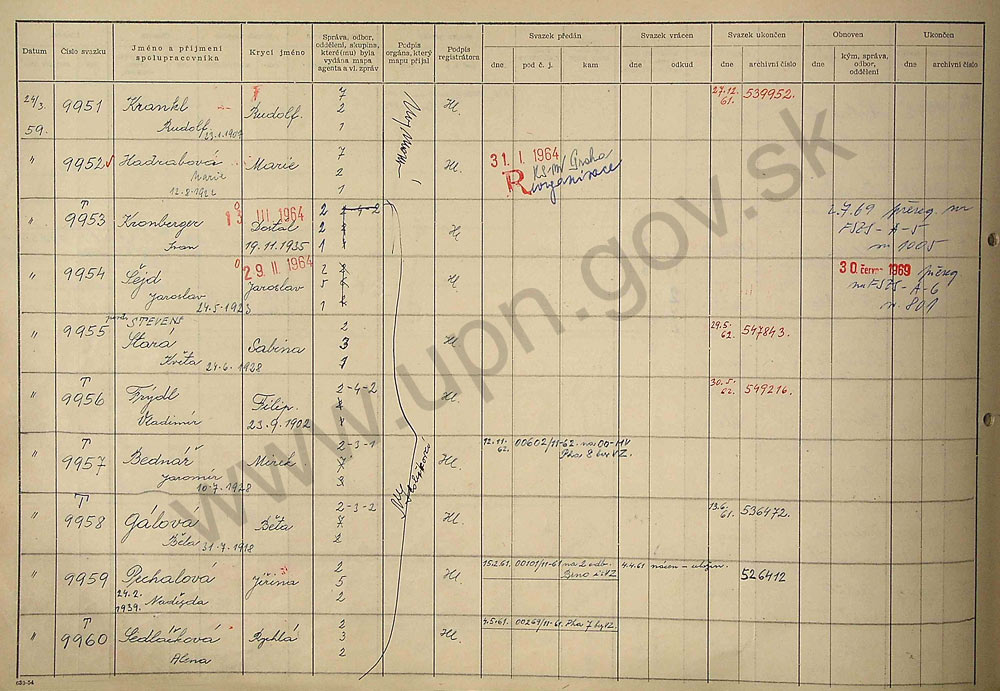 Datum
Číslo svazku
Jméno a příjmení
spolupracovníka
Krycí jméno
Správa, odbor,
oddělení, skupina,
které(mu) byla
vydána mapa
agenta a vl. zpráv
Podpis
orgána, který
mapu přijal
Podpis
registrátora
Svazek předán
dne
pod č. j.
kam
Svazek vrácen
dne
odkud
Svazek ukončen
dne
archivní číslo
Obnoven
dne
kým, správa,
odbor,
oddělení
Ukončen
dne
archivní číslo
24/3. 9951 Krankl 7 Hl. 27.12. 539952.
59. Rudolf Rudolf. 2 61.
1
" 9952 Hadrabová Marie 7 Hl. 31. I. 1964
Marie 2 R
12.8.1922 1 reorganisace
" T
9953 Kronberger III 1964 2 2-4-2 Hl 2.7.69 přereg. nr
Ivan Dostal 2 FSZS-A-5
19.11.1935 1 nr 1005
" 9954 Šejd 29 II. 1964 2 Hl 30. červen 1969 přereg
Jaroslav Jaroslav 5 nr FSZS-A-6
24.5.1923 1 nr. 801
" 9955 STEVENS 2 Hl 29.5. 547843.
Stará Sabina 3 62.
Květa 24.6.1928 1
" T
9956 Frýdl Filip. 2-4-2 Hl. 30.5. 549216.
Vladimír 23.9.1902 62.
" T
9957 Bednář Mirek. 2-3-1 Hl. 12.11. 00602/11-62. na 00-MV
Jaromír 7 62. Pha 8 bez VZ.
10.7.1928 3
" T
9958 Gálová Běta 2-3-2 Hl. 13.6. 536472.
Běla 7 61.
31.7.1918 2
" 9959 Pechalová Jiřina 2 Hl. 15.2.61. 00101/11-61 na 2 odb. 4.4.61 526412
24.2. Naděžda 5 Brno
1939. 2
" T
9960 Sedláčková Rychlá 2 Hl. 00269/11-61. Pha 7 bez VZ.
Alena 3
2
www.upn.gov.sk